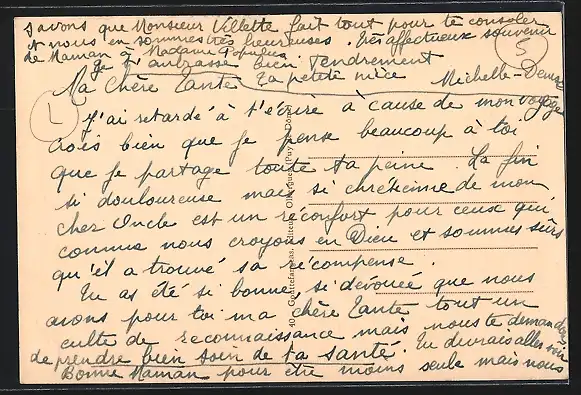 savons que Monsieur Villette fait tout pour te consoler
et nous en sommes très heureuses. Très affectueux souvenir
de Maman à Madame
Je t'embrasse bien tendrement
Ta petite nièce Michelle-Denise
5
Ma chère Tante
L
J'ai retardé à t'écrire à cause de mon voyage
crois bien que je pense beaucoup à toi
que je partage toute ta peine. La fin
si douloureuse mais si chrétienne de mon
cher Oncle est un réconfort pour ceux qui
comme nous croyons en Dieu et sommes sûrs
qu'il a trouvé sa récompense.
Tu as été si bonne, si dévouée que nous
avons pour toi ma chère Tante tout un
culte de reconnaissance mais nous te demandons
de prendre bien soin de ta santé. Tu devrais aller voir
Bonne Maman pour être moins seule mais nous
40 Éditeur, (Puy-de-Dôme)